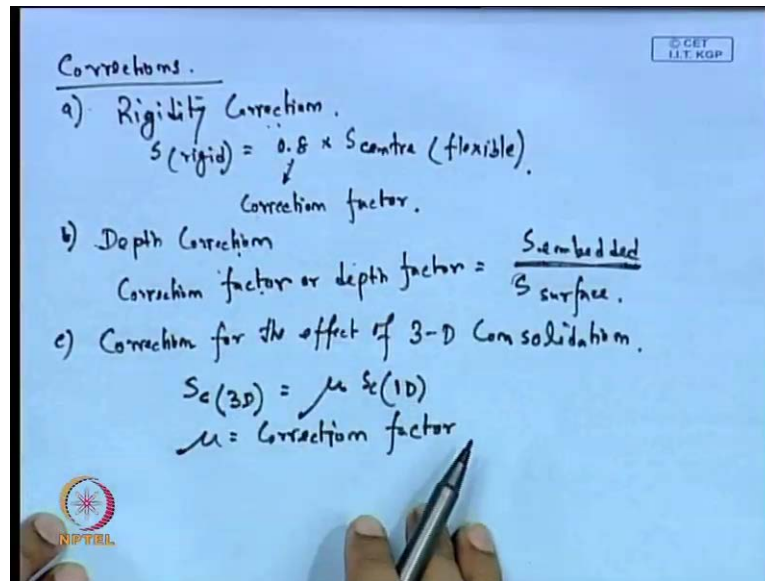 © CET
I.I.T. KGP
Corrections.
a) Rigidity Correction.
S(rigid) = 0.8 × Scentre (flexible).
Correction factor.
b) Depth Correction
Correction factor or depth factor = S embedded / S surface.
c) Correction for the effect of 3-D Consolidation.
Sc(3D) = μ Sc(1D)
μ = Correction factor
NPTEL